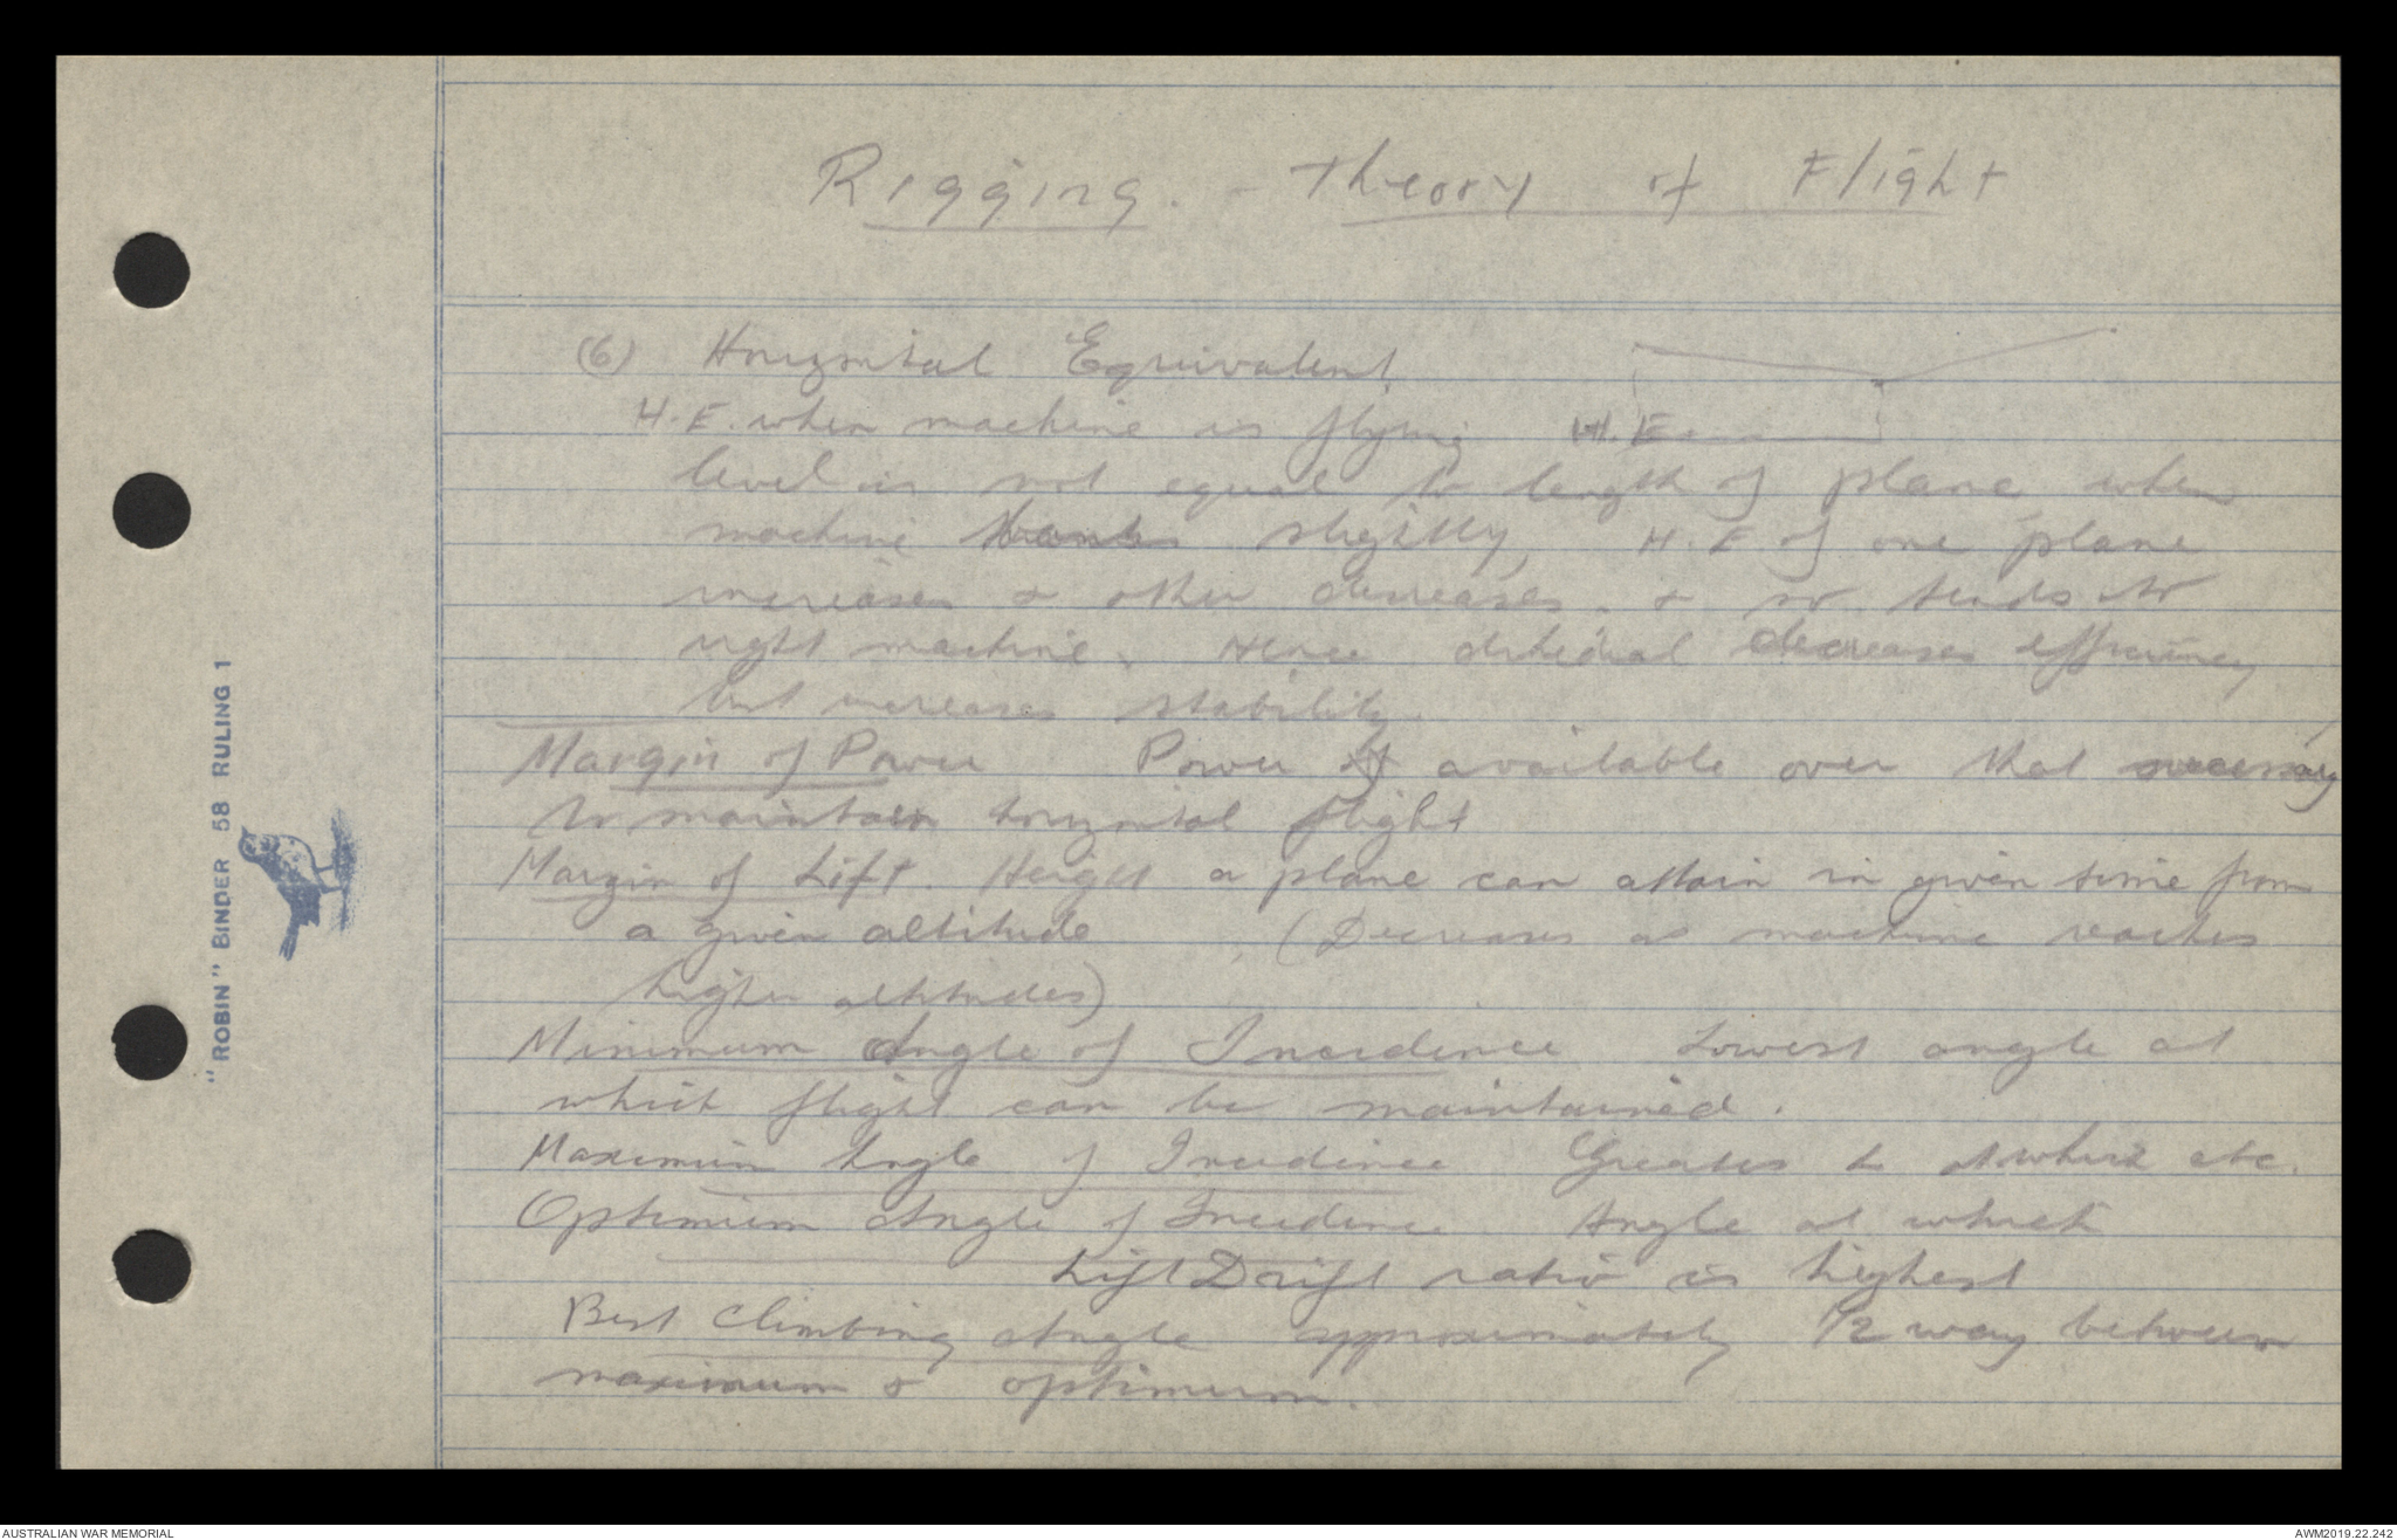 Rigging. - Theory of Flight
(6) Horizontal Equivalent.
H.E. when machine is flying H.E
level is not equal to length of plane when
machine banks slightly, H.E of one plane
increases & other decreases. & so tends to
right machine. Hence dihedral decreases efficiency
but increases stability.
Margin of Power Power available over that necessary
to maintain horizontal flight
Margin of Lift. Height a plane can attain in given time from
a given altitude (Decreases as machine reaches
higher altitudes)
Minimum Angle of Incidence Lowest angle at
which flight can be maintained.
Maximum Angle of Incidence Greates at which etc.
Optimum Angle of Incidence Angle at which
Lift Drift ratio is highest
Best Climbing Angle approximately 1/2 way between
maximum & optimum.
"ROBIN" BINDER 58 RULING 1
AUSTRALIAN WAR MEMORIAL
AWM2019.22.242